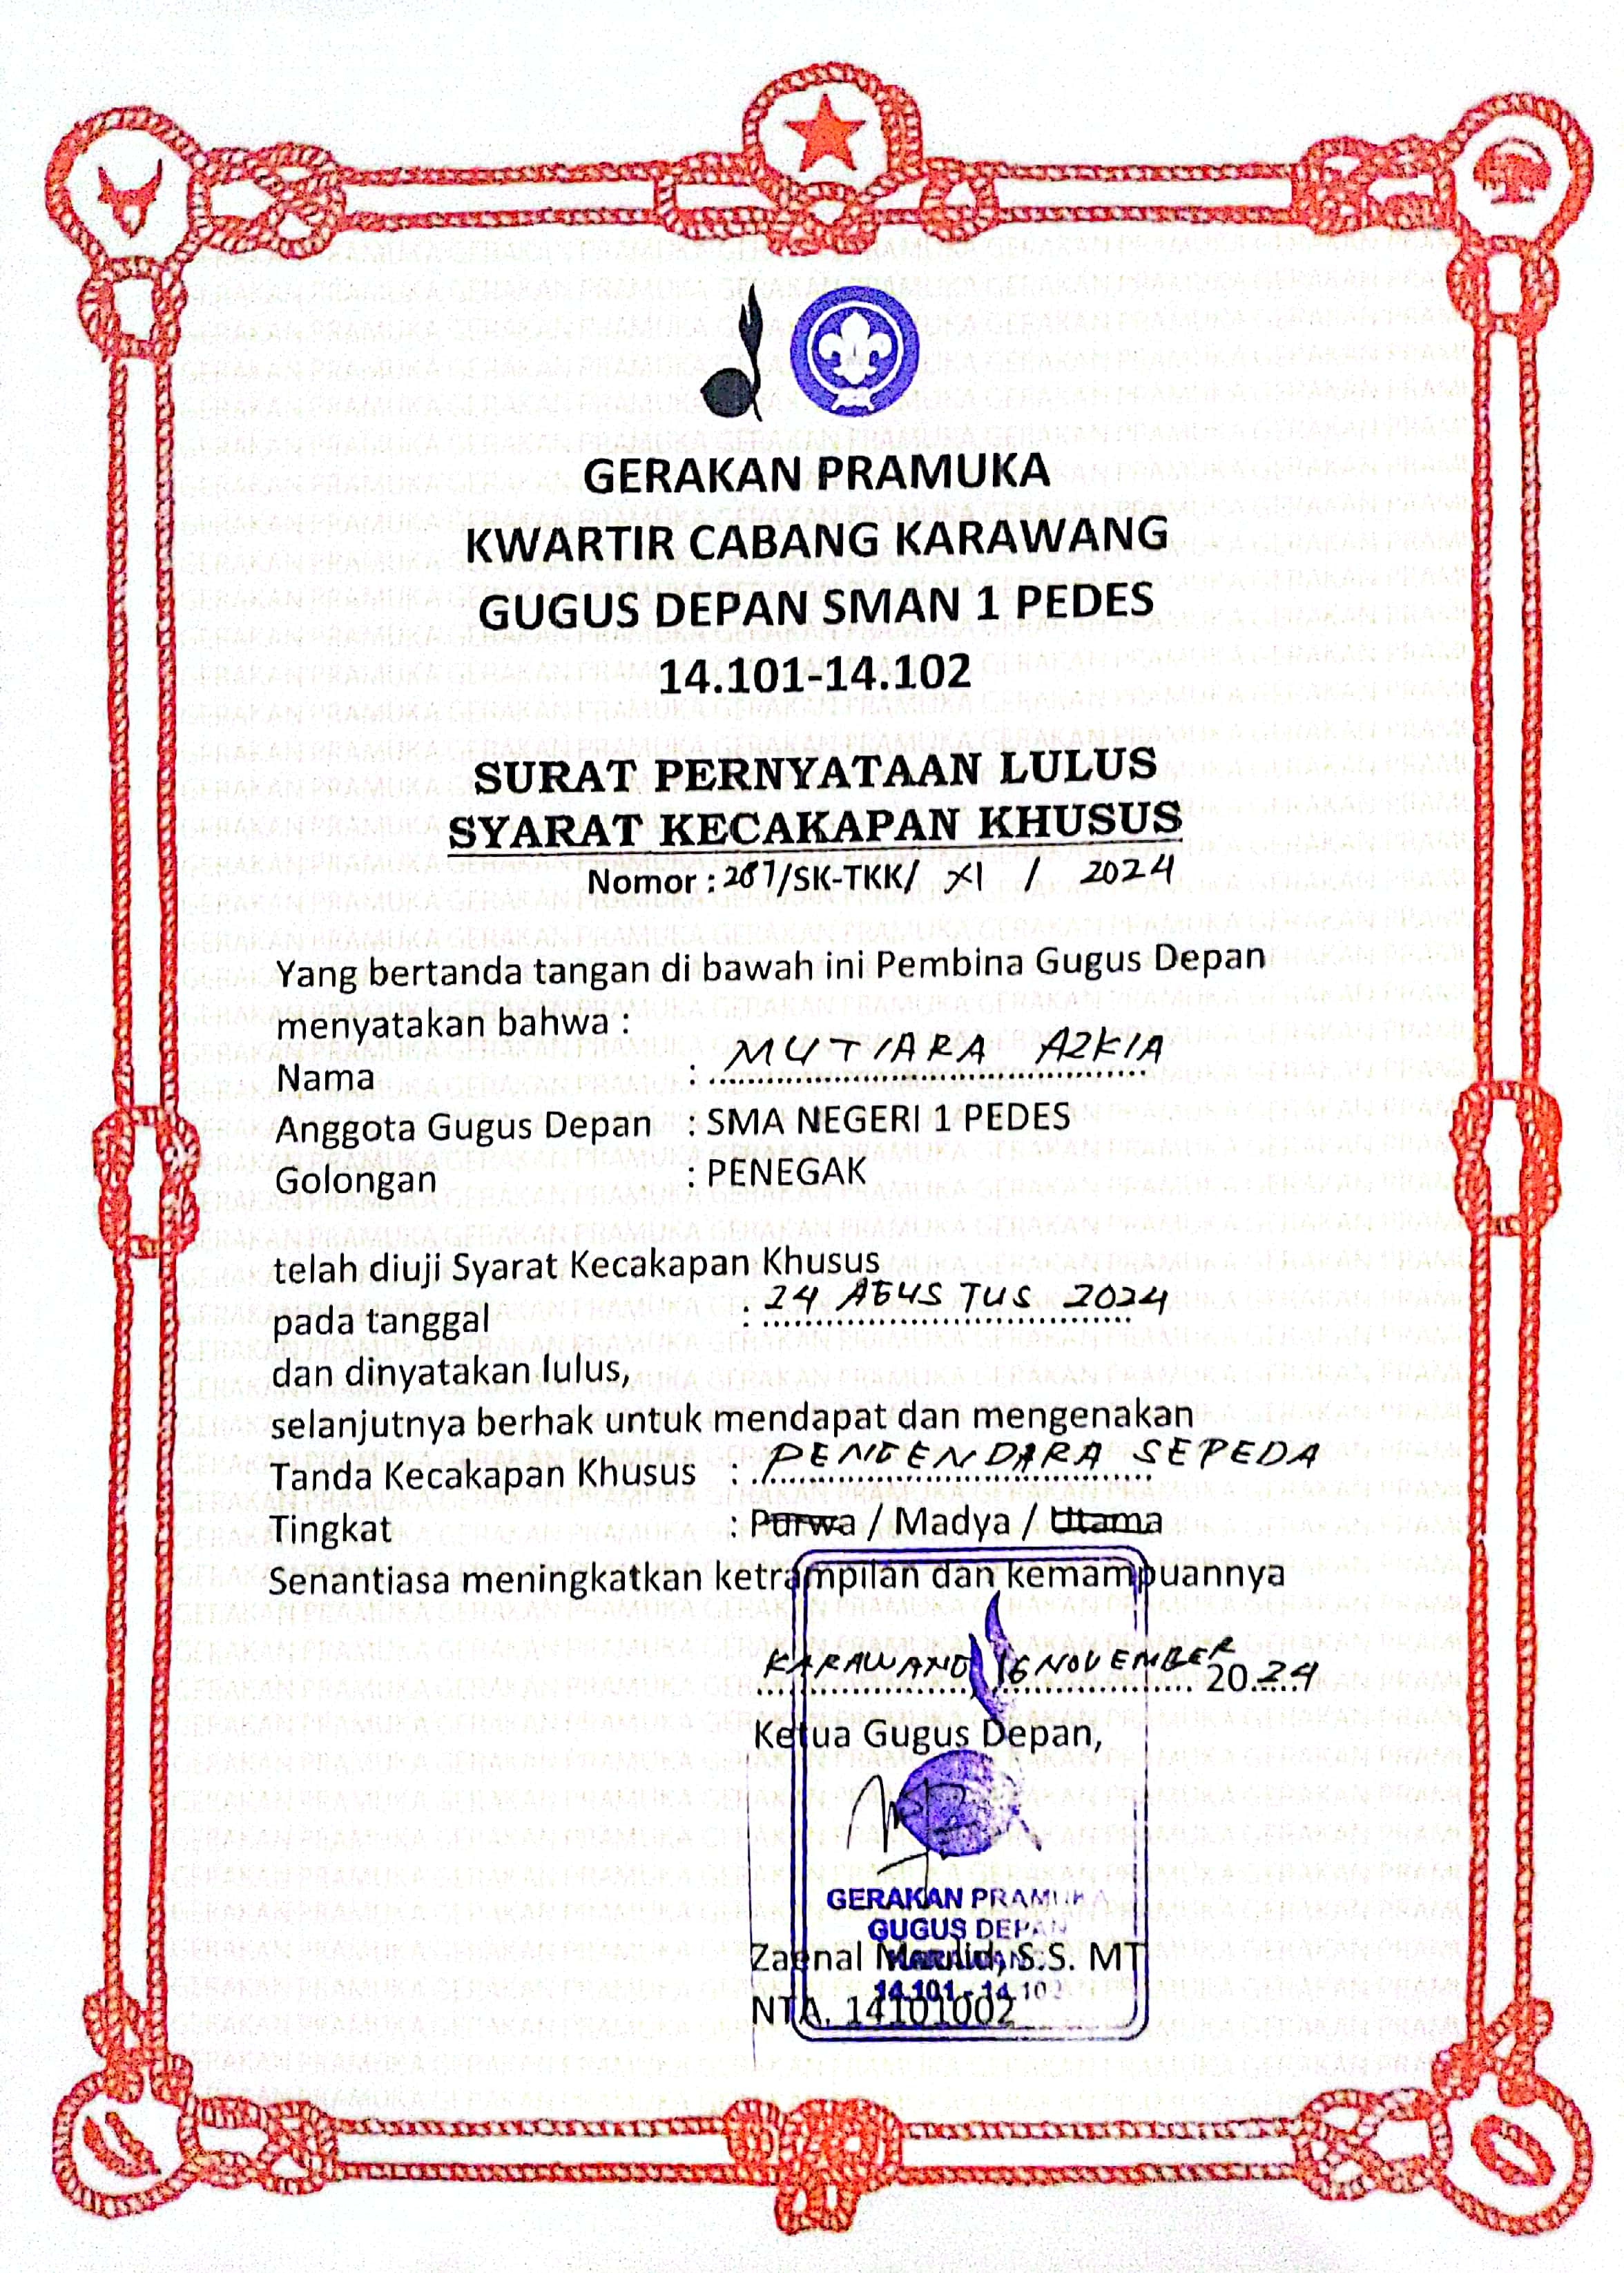 GERAKAN PRAMUKA
KWARTIR CABANG KARAWANG
GUGUS DEPAN SMAN 1 PEDES
14.101-14.102
SURAT PERNYATAAN LULUS
SYARAT KECAKAPAN KHUSUS
Nomor : 287/SK-TKK/ XI / 2024
Yang bertanda tangan di bawah ini Pembina Gugus Depan
menyatakan bahwa :
Nama : MUTIARA AZKIA
Anggota Gugus Depan : SMA NEGERI 1 PEDES
Golongan : PENEGAK
telah diuji Syarat Kecakapan Khusus
pada tanggal : 24 AGUSTUS 2024
dan dinyatakan lulus,
selanjutnya berhak untuk mendapat dan mengenakan
Tanda Kecakapan Khusus : PENGENDARA SEPEDA
Tingkat : Purwa / Madya / Utama
Senantiasa meningkatkan ketrampilan dan kemampuannya
KARAWANG, 16 NOVEMBER 2024
Ketua Gugus Depan,
GERAKAN PRAMUKA
GUGUS DEPAN
Zaenal Maulid, S.S. MT
14.101 - 14.102
NTA. 14101002